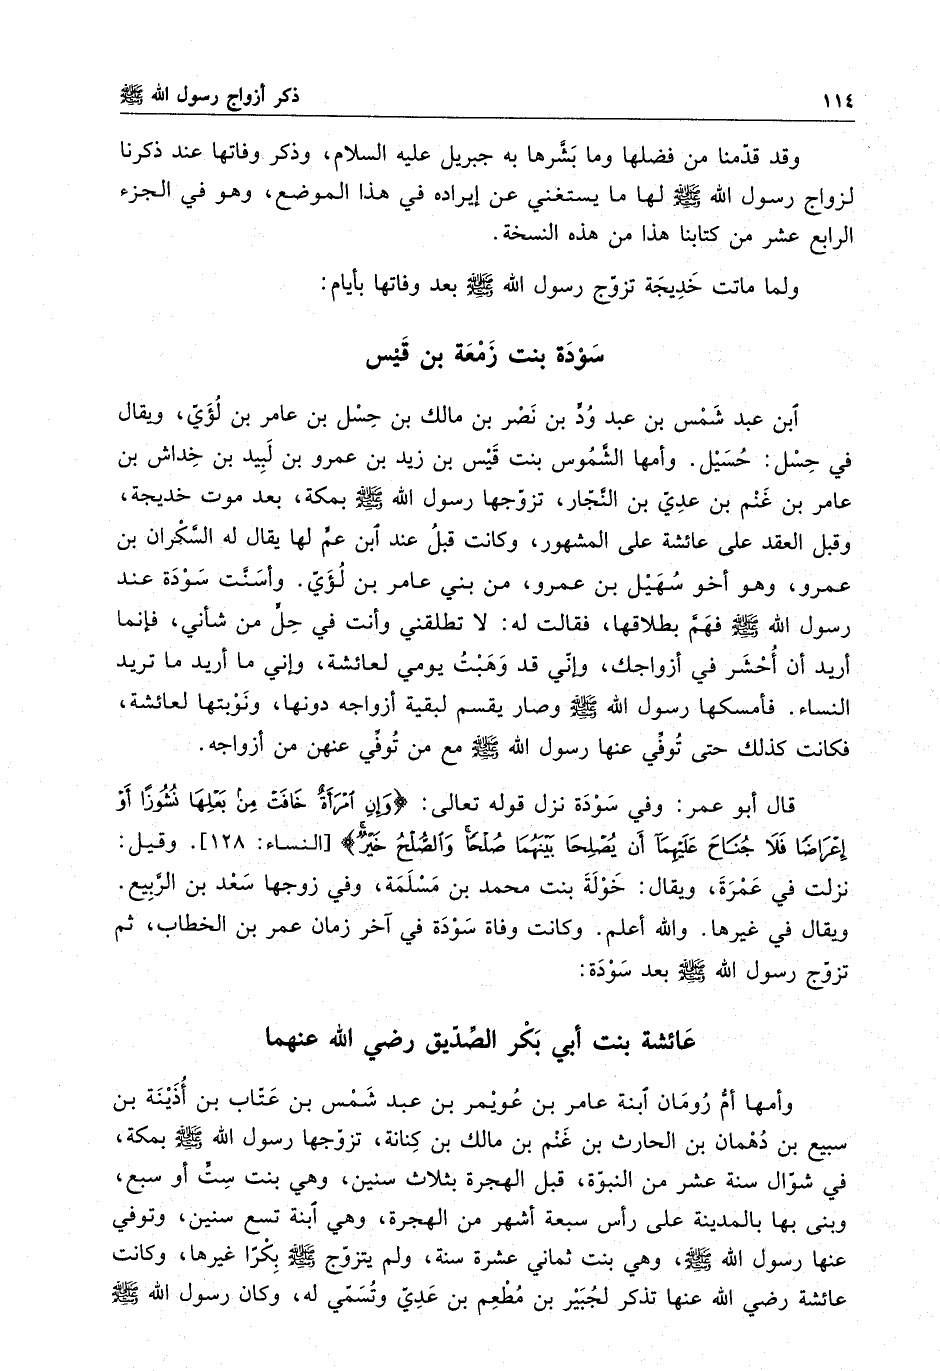 ١١٤ ذكر أزواج رسول الله ﷺ
وقد قدّمنا من فضلها وما بَشَّرها به جبريل عليه السلام، وذكر وفاتها عند ذكرنا
لزواج رسول الله ﷺ لها ما يستغني عن إيراده في هذا الموضع، وهو في الجزء
الرابع عشر من كتابنا هذا من هذه النسخة.
ولما ماتت خَدِيجَة تزوّج رسول الله ﷺ بعد وفاتها بأيام:
سَوْدَة بنت زَمْعَة بن قَيْس
ٱبن عبد شَمْس بن عبد وُدٍّ بن نَصْر بن مالك بن حِسْل بن عامر بن لُؤَيّ، ويقال
في حِسْل: حُسَيْل. وأمها الشَّمُوس بنت قَيْس بن زيد بن عمرو بن لَبِيد بن خِداش بن
عامر بن غَنْم بن عديّ بن النَّجّار، تزوّجها رسول الله ﷺ بمكة، بعد موت خديجة،
وقبل العقد على عائشة على المشهور، وكانت قبلُ عند ٱبن عمٍّ لها يقال له السَّكْران بن
عمرو، وهو أخو سُهَيْل بن عمرو، من بني عامر بن لُؤَيّ. وأسَنَّت سَوْدَة عند
رسول الله ﷺ فهَمَّ بطلاقها، فقالت له: لا تطلقني وأنت في حِلٍّ من شأني، فإنما
أريد أن أُحْشَر في أزواجك، وإنّي قد وَهَبْتُ يومي لعائشة، وإني ما أريد ما تريد
النساء. فأمسكها رسول الله ﷺ وصار يقسم لبقية أزواجه دونها، ونَوْبتها لعائشة،
فكانت كذلك حتى تُوفِّي عنها رسول الله ﷺ مع من تُوفِّي عنهن من أزواجه.
قال أبو عمر: وفي سَوْدَة نزل قوله تعالى: ﴿وَإِنِ ٱمْرَأَةٌ خَافَتْ مِنۢ بَعْلِهَا نُشُوزًا أَوْ
إِعْرَاضًا فَلَا جُنَاحَ عَلَيْهِمَآ أَن يُصْلِحَا بَيْنَهُمَا صُلْحًا ۚ وَٱلصُّلْحُ خَيْرٌ ۗ﴾ [النساء: ١٢٨]. وقيل:
نزلت في عَمْرَة، ويقال: خَوْلَةَ بنت محمد بن مَسْلَمَة، وفي زوجها سَعْد بن الرَّبِيع.
ويقال في غيرها. والله أعلم. وكانت وفاة سَوْدَة في آخر زمان عمر بن الخطاب، ثم
تزوّج رسول الله ﷺ بعد سَوْدَة:
عَائشة بنت أبي بَكْر الصِّدّيق رضي الله عنهما
وأمها أمُّ رُومَان ٱبنة عامر بن عُويْمر بن عبد شَمْس بن عَتّاب بن أُذَيْنَة بن
سبيع بن دُهْمان بن الحارث بن غَنْم بن مالك بن كِنانة، تزوّجها رسول الله ﷺ بمكة،
في شوّال سنة عشر من النبوّة، قبل الهجرة بثلاث سنين، وهي بنت سِتٍّ أو سبع،
وبنى بها بالمدينة على رأس سبعة أشهر من الهجرة، وهي ٱبنة تسع سنين، وتوفي
عنها رسول الله ﷺ، وهي بنت ثماني عشرة سنة، ولم يتزوّج ﷺ بِكْرًا غيرها، وكانت
عائشة رضي الله عنها تذكر لجُبَيْر بن مُطْعِم بن عَدِيّ وتُسَمّي له، وكان رسول الله ﷺ